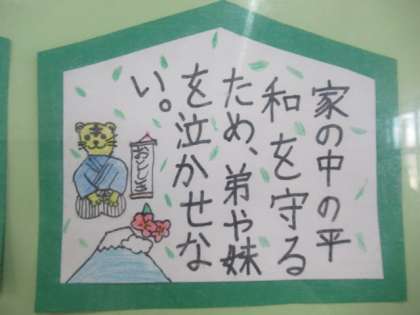 家の中の平
和を守る
ため、弟や妹
を泣かせな
い。